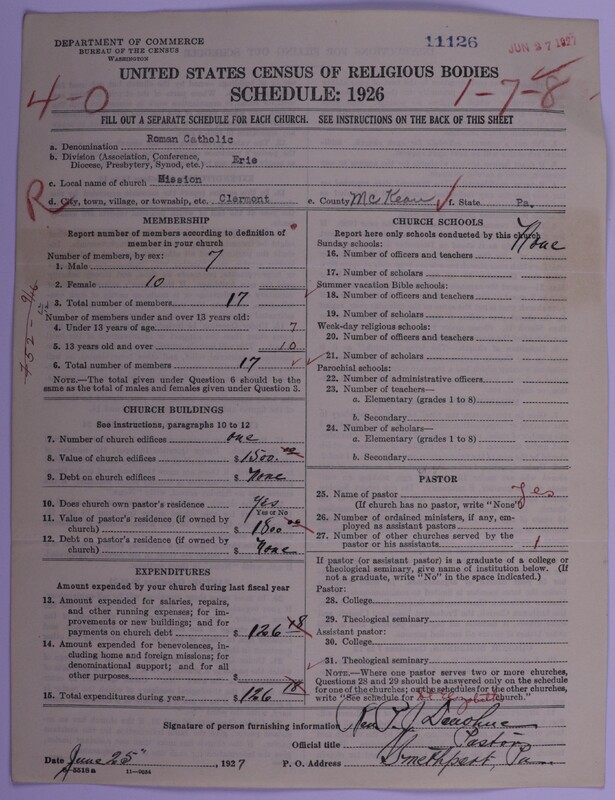 DEPARTMENT OF COMMERCE
BUREAU OF THE CENSUS
WASHINGTON
11126
JUN 27 1927
UNITED STATES CENSUS OF RELIGIOUS BODIES
SCHEDULE: 1926
4-0
1-7-8
FILL OUT A SEPARATE SCHEDULE FOR EACH CHURCH. SEE INSTRUCTIONS ON THE BACK OF THIS SHEET
a. Denomination Roman Catholic
b. Division (Association, Conference, Diocese, Presbytery, Synod, etc.) Erie
c. Local name of church Mission
R
d. City, town, village, or township, etc. Clermont e. County McKean f. State Pa.
MEMBERSHIP
Report number of members according to definition of
member in your church
Number of members, by sex:
1. Male 7
2. Female 10
3. Total number of members 17
Number of members under and over 13 years old:
4. Under 13 years of age 7
5. 13 years old and over 10
6. Total number of members 17
NOTE.—The total given under Question 6 should be
the same as the total of males and females given under Question 3.
CHURCH BUILDINGS
See instructions, paragraphs 10 to 12
7. Number of church edifices one
8. Value of church edifices $ 1500.00
9. Debt on church edifices $ None
10. Does church own pastor's residence Yes
Yes or No
11. Value of pastor's residence (if owned by
church) $ 1800 00
12. Debt on pastor's residence (if owned by
church) $ None
EXPENDITURES
Amount expended by your church during last fiscal year
13. Amount expended for salaries, repairs,
and other running expenses; for im-
provements or new buildings; and for
payments on church debt $ 126 18
14. Amount expended for benevolences, in-
cluding home and foreign missions; for
denominational support; and for all
other purposes $
15. Total expenditures during year $ 126 18
CHURCH SCHOOLS
Report here only schools conducted by this church
None
Sunday schools:
16. Number of officers and teachers
17. Number of scholars
Summer vacation Bible schools:
18. Number of officers and teachers
19. Number of scholars
Week-day religious schools:
20. Number of officers and teachers
21. Number of scholars
Parochial schools:
22. Number of administrative officers
23. Number of teachers—
a. Elementary (grades 1 to 8)
b. Secondary
24. Number of scholars—
a. Elementary (grades 1 to 8)
b. Secondary
PASTOR
25. Name of pastor Yes
(If church has no pastor, write "None")
26. Number of ordained ministers, if any, em-
ployed as assistant pastors
27. Number of other churches served by the
pastor or his assistants 1
If pastor (or assistant pastor) is a graduate of a college or
theological seminary, give name of institution below. (If
not a graduate, write "No" in the space indicated.)
Pastor:
28. College
29. Theological seminary
Assistant pastor:
30. College
31. Theological seminary
NOTE.—Where one pastor serves two or more churches,
Questions 28 and 29 should be answered only on the schedule
for one of the churches; on the schedules for the other churches,
write "See schedule for St Elizabeth church."
Signature of person furnishing information Rev. T. J. Donohue
Official title Pastor
Date June 25, 1927 P. O. Address Smethport, Pa.
11—9054